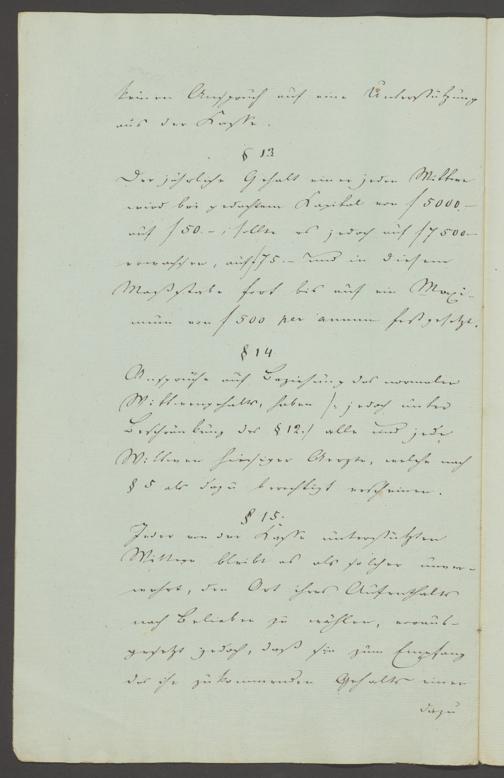 keinen Anspruch auf eine Unterstützung
aus der Kasse.
§ 13
Der jährliche Gehalt einer jeden Wittwe
wird bei gedachtem Kapital von f 5000.—
auf f 50.—; sollte es jedoch auf f 7500.—
erwachsen, auf f 75.— und in diesem
Maßstabe fort bis auf ein Maxi-
mum von f 500 per annum festgesetzt.
§ 14
Ansprüche auf Beziehung des normalen
Wittwengehalts, haben /: jedoch unter
Beschränkung des § 12 :/ alle und jede
Wittwen hiesiger Aerzte, welche nach
§ 5 als dazu berechtigt erscheinen.
§ 15.
Jeder von der Kasse unterstützten
Wittwe bleibt es als solcher unver-
wehrt, den Ort ihres Aufenthalts
nach Belieben zu wählen, voraus-
gesetzt jedoch, daß sie zum Empfang
des ihr zukommenden Gehalts einen
dazu